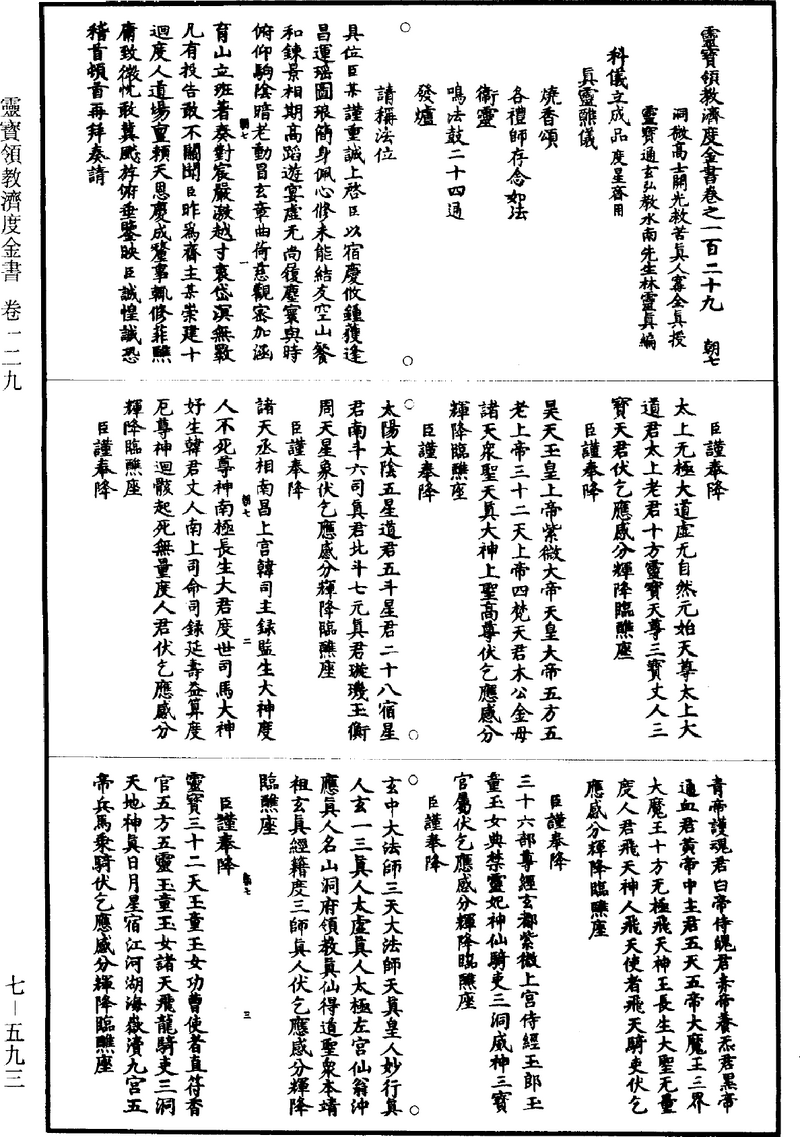 靈寶領教濟度金書卷之一百二十九 朝七
洞微高士開光救苦眞人甯全眞授
靈寶通玄弘教水南先生林靈眞編
科儀立成品 度星齋用
眞靈醮儀
燒香頌
各禮師存念如法
衛靈
鳴法鼓二十四通
發爐
請稱法位
具位臣某謹重誠上啓臣以宿慶攸鍾獲逢
昌運瑶圖琅簡身佩心修未能結友空山餐
和鍊景相期高蹈遊宴虚无尚履塵寰與時
俯仰駒陰暗老動冒玄章曲荷慈觀密加涵
育山立班著奏對宸嚴激越寸衷岱溟無斁
凡有投告敢不關聞臣昨爲齋主某崇建十
迴度人道場重賴天恩慶成鼇事輒修菲醮
庸致微忱敢冀飈斿俯垂鑒映臣誠惶誠恐
稽首頓首再拜奏請
臣謹奉降
太上无極大道虚无自然元始天尊太上大
道君太上老君十方靈寶天尊三寶丈人三
寶天君伏乞應感分輝降臨醮座
臣謹奉降
昊天玉皇上帝紫微大帝天皇大帝五方五
老上帝三十二天上帝四梵天君木公金母
諸天衆聖天眞大神上聖高尊伏乞應感分
輝降臨醮座
臣謹奉降
太陽太陰五星道君五斗星君二十八宿星
君南斗六司眞君北斗七元眞君璇璣玉衡
周天星象伏乞應感分輝降臨醮座
臣謹奉降
諸天丞相南昌上宫韓司主録監生大神度
人不死尊神南極長生大君度世司馬大神
好生韓君丈人南上司命司録延壽益算度
厄尊神迴骸起死無量度人君伏乞應感分
輝降臨醮座
臣謹奉降
青帝護魂君白帝侍魄君赤帝養炁君黑帝
通血君黄帝中主君五天五帝大魔王三界
大魔王十方无極飛天神王長生大聖无量
度人君飛天神人飛天使者飛天騎吏伏乞
應感分輝降臨醮座
臣謹奉降
三十六部尊經玄都紫微上宫侍經玉郎玉
童玉女典禁靈妃神仙騎吏三洞威神三寶
官屬伏乞應感分輝降臨醮座
臣謹奉降
玄中大法師三天大法師天眞皇人妙行眞
人玄一三眞人太虚眞人太極左宫仙翁沖
應眞人名山洞府領教眞仙得道聖衆本靖
祖玄眞經籍度三師眞人伏乞應感分輝降
臨醮座
臣謹奉降
靈寶三十二天玉童玉女功曹使者直符香
官五方五靈玉童玉女諸天飛龍騎吏三洞
天地神眞日月星宿江河湖海嶽瀆九宫五
帝兵馬乘騎伏乞應感分輝降臨醮座
朝七 一
朝七 二
朝七 三
靈寶領教濟度金書 卷一二九
七－五九三